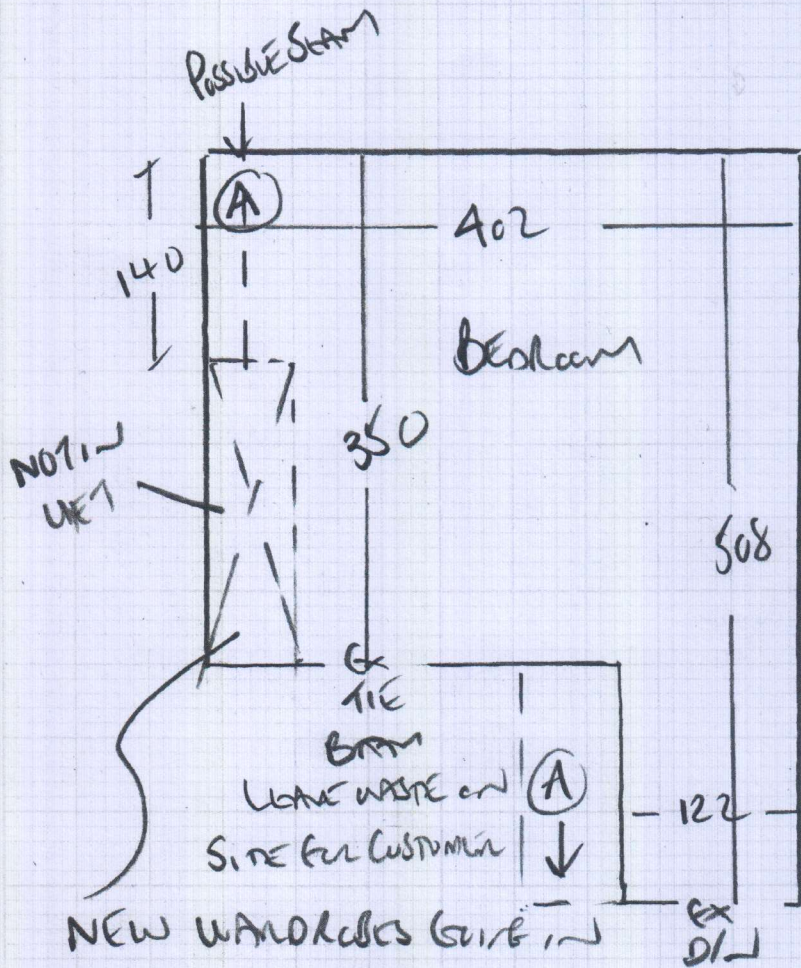 POSSIBLE SEAM
A
402
140
BEDROOM
350
NOT IN
YET
508
EX
TIE
BAR
LEAVE WASTE ON
SITE FOR CUSTOMER
A
122
NEW WARDROBES GOING IN
EX
D/N